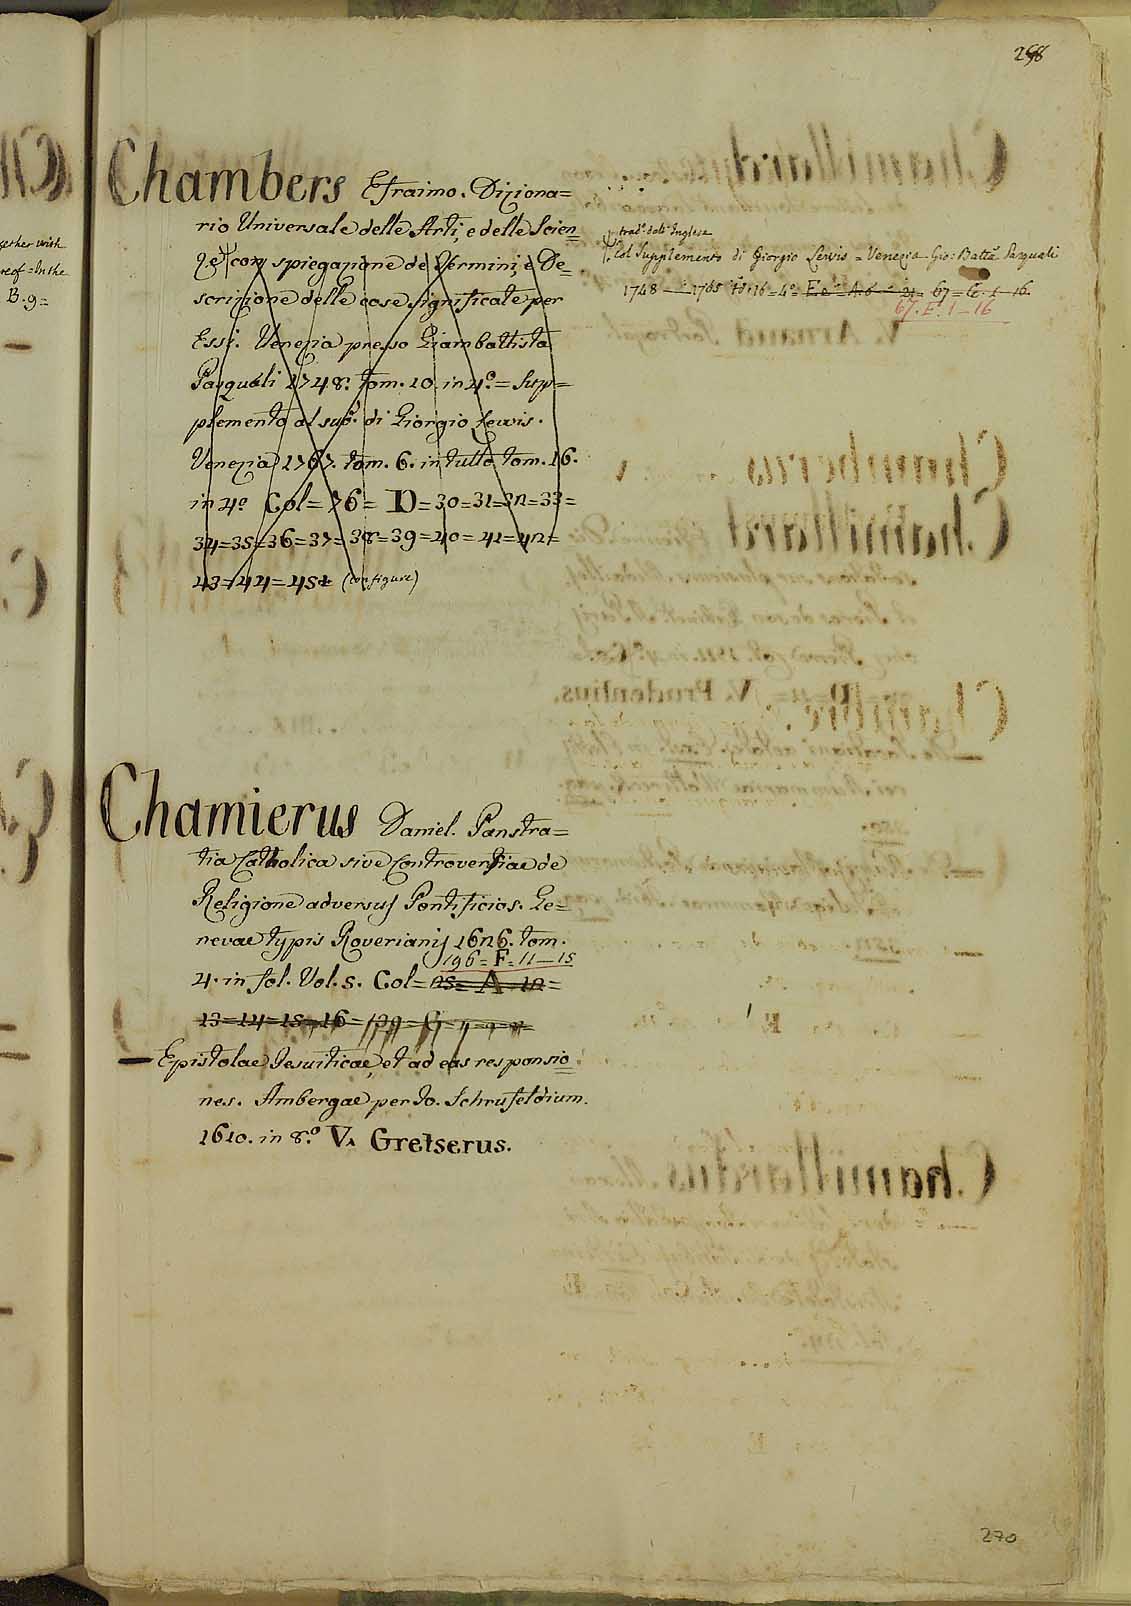 298
Chambers Efraimo. Diziona=
rio Universale delle Arti, e delle Scien=
ze con spiegazione de Termini, e De=
scrizione delle cose significate per
Essi. Venezia presso Giambattista
Pasquali 1748. tom. 10. in 4.º = Sup=
plemento al sud.º di Giorgio Lewis.
Venezia 1767. tom. 6. in tutto tom. 16.
in 4º Col = 76 = D = 30 = 31 = 32 = 33 =
34 = 35 = 36 = 37 = 38 = 39 = 40 = 41 = 42 =
43 = 44 = 45 = (con figure)
trad.º dall' Inglese
Col Supplemento di Giorgio Lewis = Venezia Gio: Batta Pasquali
1748 — 1765 to. 16 = 4º = 67 = 1 - 16.
67. E. 1 — 16
Chamierus Daniel. Panstra=
tia Catholica sive Controversiae de
Religione adversus Pontificios. Ge=
nevae typis Roverianis 1626. tom.
196 = F = 11 — 15
4. in fol. Vol. 5. Col = 25 = A = 12 =
13 = 14 = 15 = 16 =
— Epistolae Jesuiticae, et ad eas responsio=
nes. Ambergae per Jo. Schrufeldium.
1610. in 8.º V. Gretserus.
270
gether with
reof = In the
B. 9 =